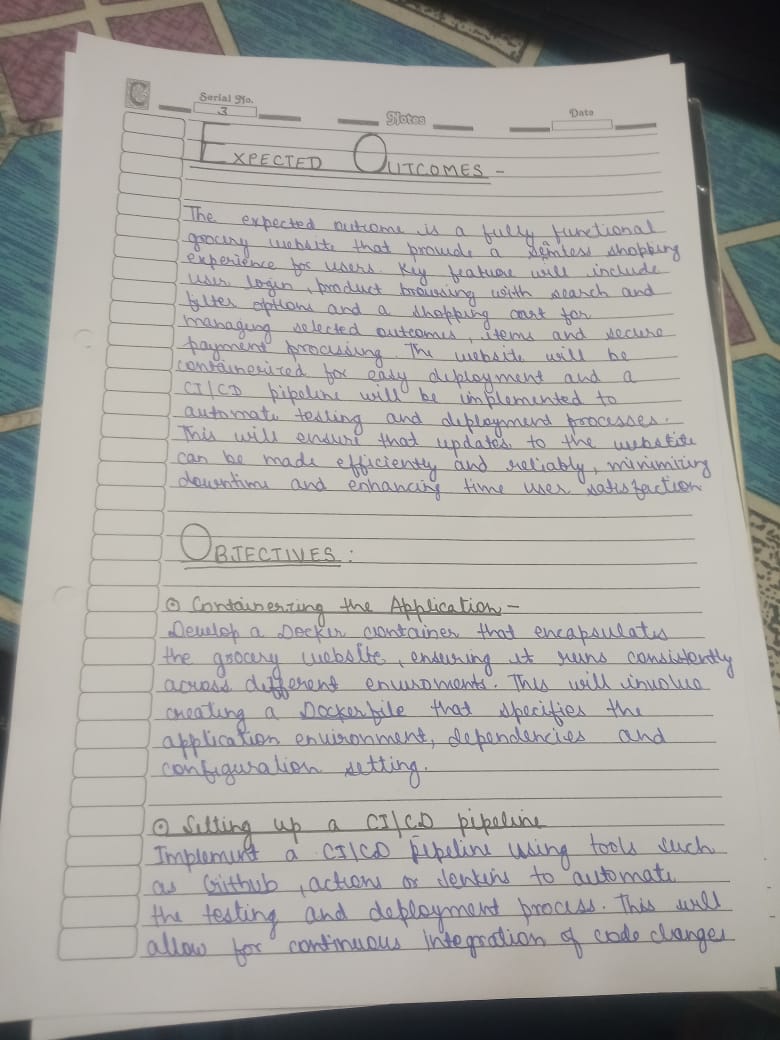 C
Serial No.
3
Notes
Date
EXPECTED OUTCOMES -
The expected outcome is a fully functional
grocery website that provide a semless shopping
experience for users. Key feature will include
user login, product browsing with search and
filter options and a shopping cart for
managing selected outcomes, items and secure
payment processing. The website will be
containerized for easy deployment and a
CI/CD pipeline will be implemented to
automate testing and deployment processes.
This will ensure that updates to the website
can be made efficiently and reliably, minimizing
downtime and enhancing time user satisfaction
OBJECTIVES :
⊙ Containerzing the Application -
Develop a Docker container that encapsulates
the grocery website, ensuring it runs consistently
across different enviroments. This will involve
creating a Dockerfile that specifies the
application environment, dependencies and
configuration setting.
⊙ Setting up a CI/CD pipeline
Implement a CI/CD pipeline using tools such
as Github, actions or Jenkins to automate
the testing and deployment process. This will
allow for continuous Integration of code changes